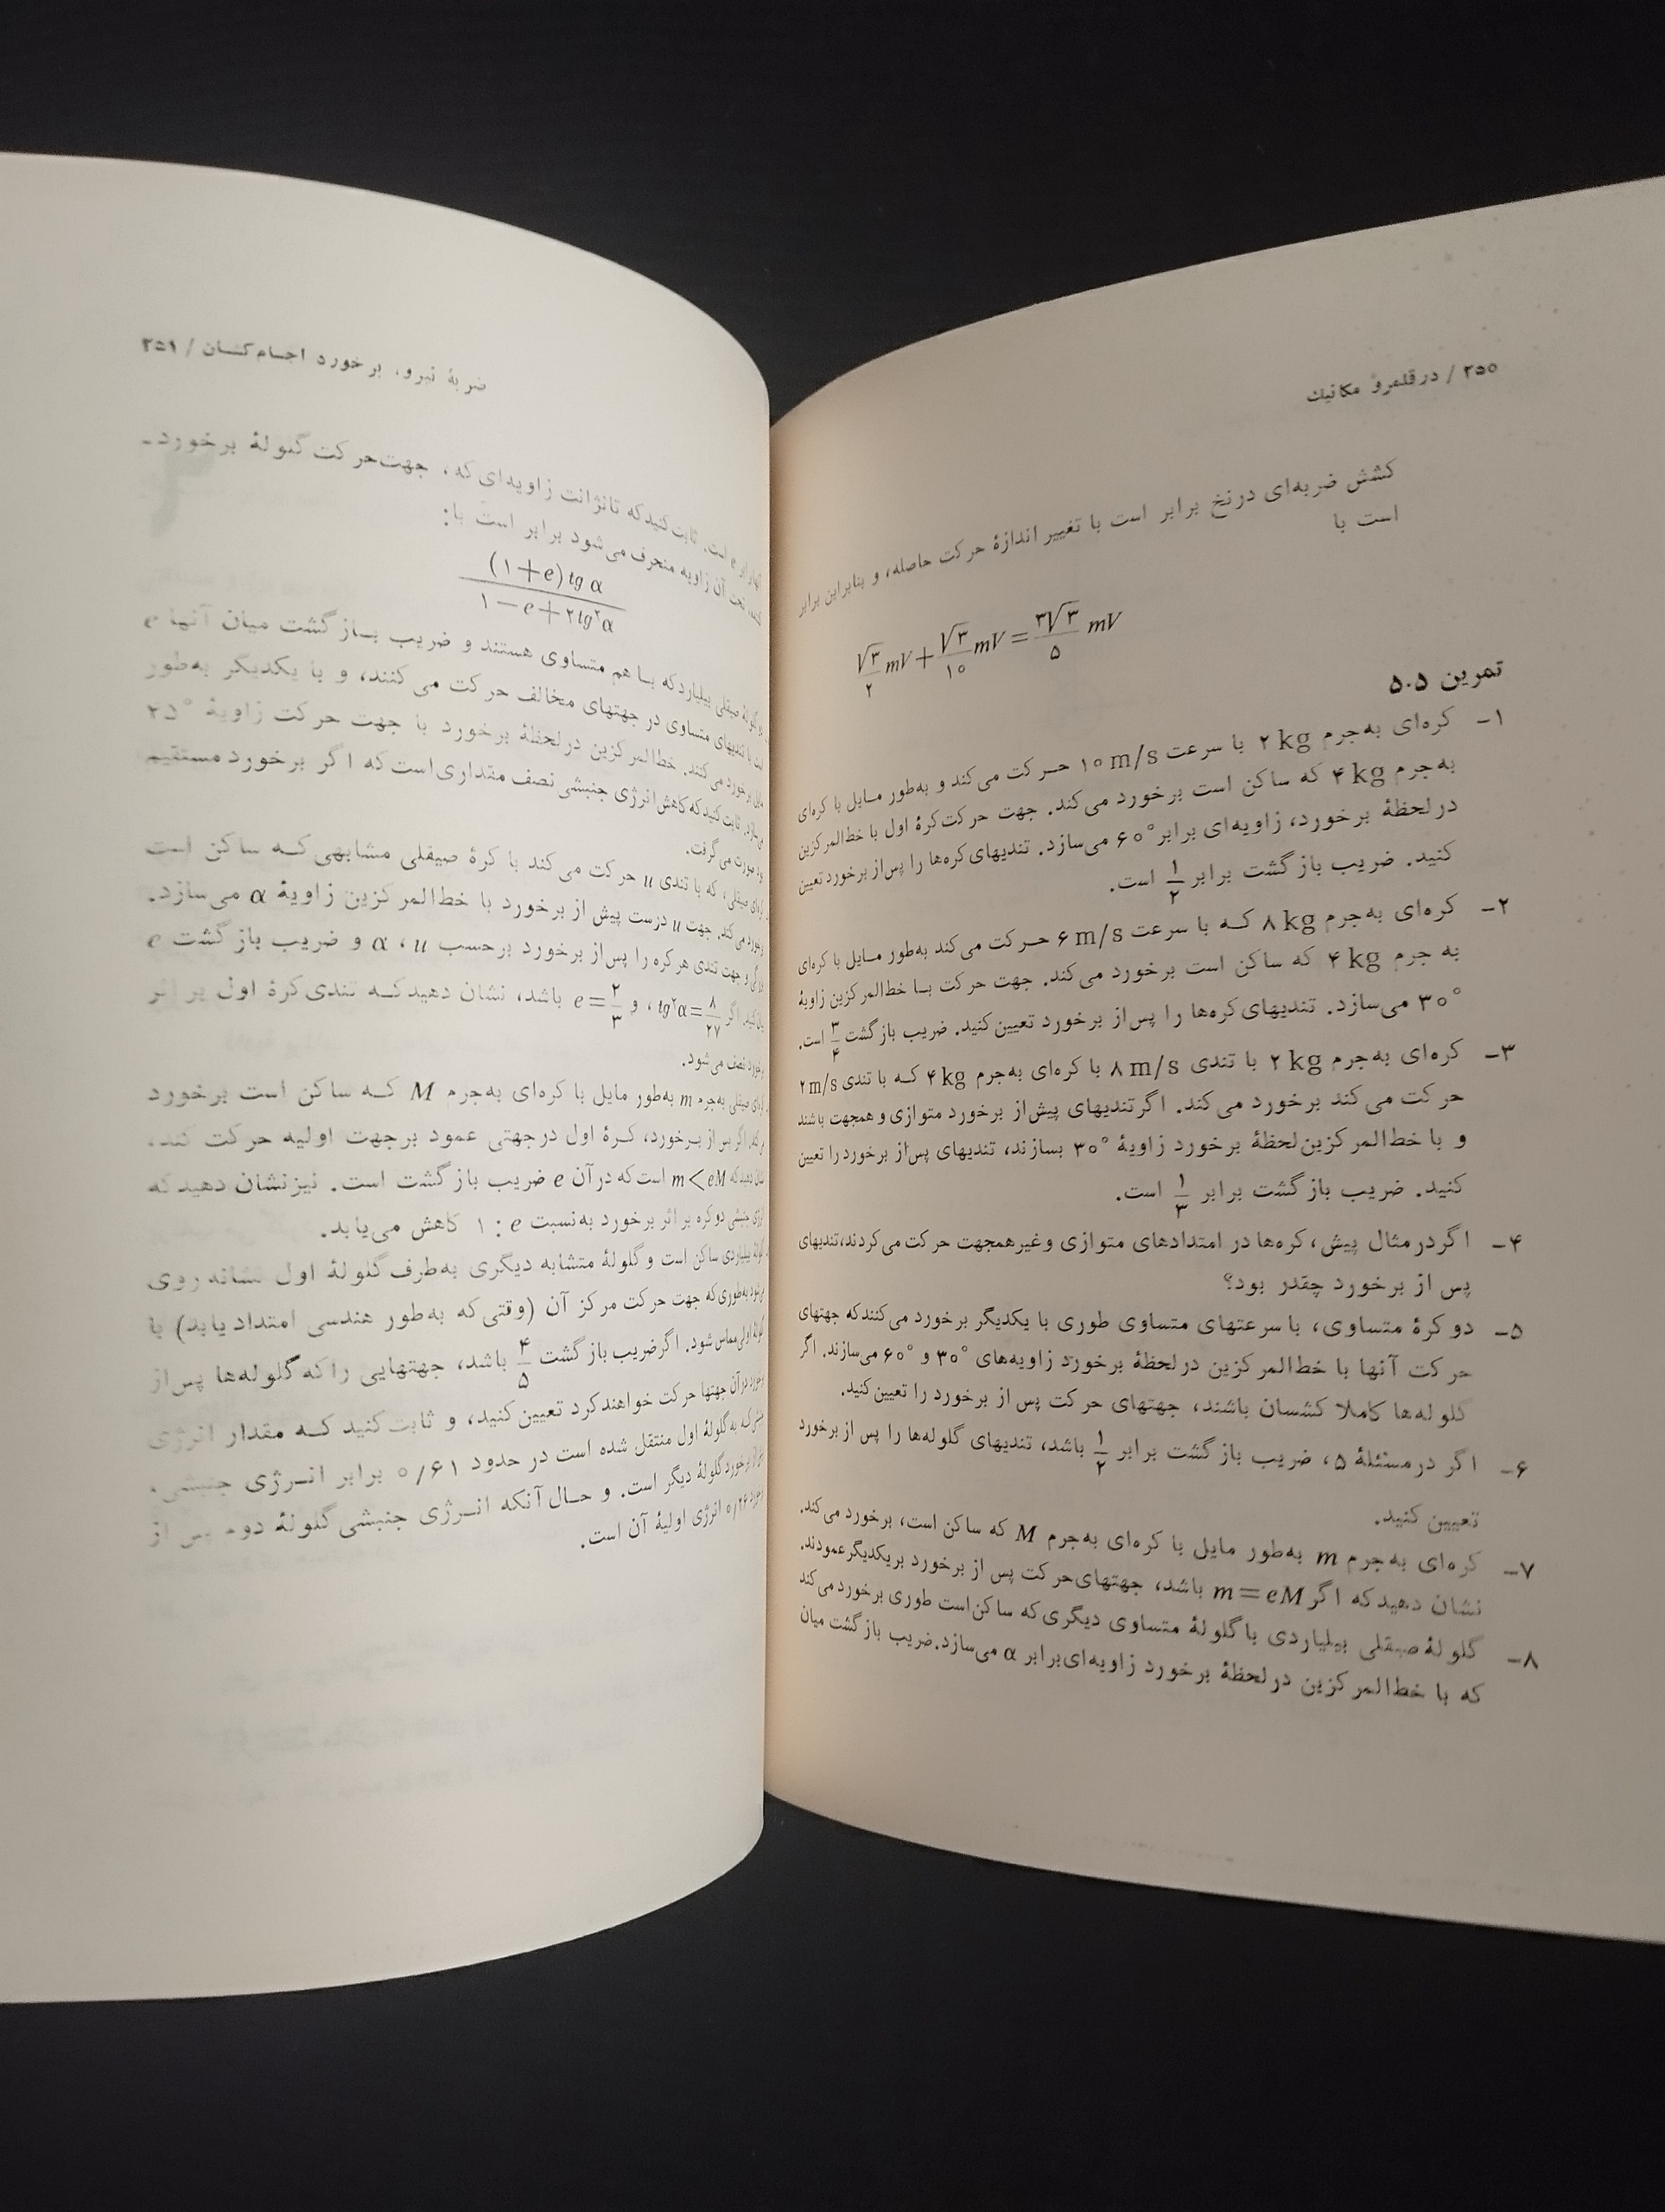 ۲۵۰ / در قلمرو مکانیك
کشش ضربه‌ای در نخ برابر است با تغییر اندازهٔ حرکت حاصله، و بنابراین برابر
است با
√۳/۲ mV + √۳/۱۰ mV = ۳√۳/۵ mV
تمرین ۵.۵
۱- کره‌ای به‌جرم ۲ kg با سرعت ۱۰ m/s حرکت می‌کند و به‌طور مایل با کره‌ای
به‌جرم ۴ kg که ساکن است برخورد می‌کند. جهت حرکت کرهٔ اول با خط‌المرکزین
در لحظهٔ برخورد، زاویه‌ای برابر ۶۰° می‌سازد. تندیهای کره‌ها را پس‌از برخورد تعیین
کنید. ضریب بازگشت برابر ۱/۲ است.
۲- کره‌ای به‌جرم ۸ kg که با سرعت ۶ m/s حرکت می‌کند به‌طور مایل با کره‌ای
به جرم ۴ kg که ساکن است برخورد می‌کند. جهت حرکت با خط‌المرکزین زاویهٔ
۳۰° می‌سازد. تندیهای کره‌ها را پس‌از برخورد تعیین کنید. ضریب بازگشت ۳/۴ است.
۳- کره‌ای به‌جرم ۲ kg با تندی ۸ m/s با کره‌ای به‌جرم ۴ kg که با تندی ۲ m/s
حرکت می‌کند برخورد می‌کند. اگر تندیهای پیش‌از برخورد متوازی و همجهت باشند
و با خط‌المرکزین لحظهٔ برخورد زاویهٔ ۳۰° بسازند، تندیهای پس‌از برخورد را تعیین
کنید. ضریب بازگشت برابر ۱/۳ است.
۴- اگر در مثال پیش، کره‌ها در امتدادهای متوازی و غیرهمجهت حرکت می‌کردند، تندیهای
پس از برخورد چقدر بود؟
۵- دو کرهٔ متساوی، با سرعتهای متساوی طوری با یکدیگر برخورد می‌کنند که جهتهای
حرکت آنها با خط‌المرکزین در لحظهٔ برخورد زاویه‌های ۳۰° و ۶۰° می‌سازند. اگر
گلوله‌ها کاملا کشسان باشند، جهتهای حرکت پس از برخورد را تعیین کنید.
۶- اگر در مسئلهٔ ۵، ضریب بازگشت برابر ۱/۲ باشد، تندیهای گلوله‌ها را پس از برخورد
تعیین کنید.
۷- کره‌ای به‌جرم m به‌طور مایل با کره‌ای به‌جرم M که ساکن است، برخورد می‌کند.
نشان دهید که اگر m = eM باشد، جهتهای حرکت پس از برخورد بر یکدیگر عمودند.
۸- گلولهٔ صیقلی بیلیاردی با گلولهٔ متساوی دیگری که ساکن است طوری برخورد می‌کند
که با خط‌المرکزین در لحظهٔ برخورد زاویه‌ای برابر α می‌سازد. ضریب بازگشت میان
ضربهٔ نیرو، برخورد اجسام کشسان / ۲۵۱
e است. ثابت کنید که تانژانت زاویه‌ای که، جهت حرکت گلولهٔ برخورد-
تحت آن زاویه منحرف می‌شود برابر است با:
(۱+e) tg α / ۱−e+۲tg²α
گلولهٔ صیقلی بیلیارد که با هم متساوی هستند و ضریب بازگشت میان آنها e
با تندیهای متساوی در جهتهای مخالف حرکت می‌کنند، و با یکدیگر به‌طور
مایل برخورد می‌کنند. خط‌المرکزین در لحظهٔ برخورد با جهت حرکت زاویهٔ ۴۵°
می‌سازد. ثابت کنید که کاهش انرژی جنبشی نصف مقداری است که اگر برخورد مستقیم
صورت می‌گرفت.
کره‌ای صیقلی، که با تندی u حرکت می‌کند با کرهٔ صیقلی مشابهی که ساکن است
برخورد می‌کند. جهت u درست پیش از برخورد با خط‌المرکزین زاویهٔ α می‌سازد.
و جهت تندی هر کره را پس‌از برخورد برحسب u، α و ضریب بازگشت e
اگر tg²α = ۸/۲۷، و e = ۲/۳ باشد، نشان دهید که تندی کرهٔ اول بر اثر
برخورد نصف می‌شود.
کره‌ای صیقلی به‌جرم m به‌طور مایل با کره‌ای به‌جرم M که ساکن است برخورد
می‌کند. اگر پس از برخورد، کرهٔ اول در جهتی عمود بر جهت اولیه حرکت کند،
نشان دهید که m < eM است که در آن e ضریب بازگشت است. نیز نشان دهید که
انرژی جنبشی دو کره بر اثر برخورد به‌نسبت e : ۱ کاهش می‌یابد.
گلولهٔ بیلیاردی ساکن است و گلولهٔ متشابه دیگری به‌طرف گلولهٔ اول نشانه روی
می‌شود به‌طوری که جهت حرکت مرکز آن (وقتی که به‌طور هندسی امتداد یابد) با
گلولهٔ اولی مماس شود. اگر ضریب بازگشت ۴/۵ باشد، جهتهایی را که گلوله‌ها پس‌از
برخورد در آن جهتها حرکت خواهند کرد تعیین کنید، و ثابت کنید که مقدار انرژی
که به گلولهٔ اول منتقل شده است در حدود ۰/۶۱ برابر انرژی جنبشی
برخورد گلولهٔ دیگر است. و حال آنکه انرژی جنبشی گلولهٔ دوم پس از
۰/۲۶ انرژی اولیهٔ آن است.